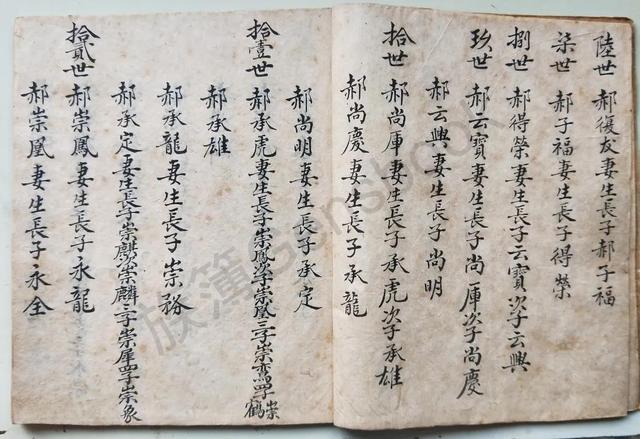 陸世 郝復友妻生長子郝子福
柒世 郝子福妻生長子得榮
捌世 郝得榮妻生長子云寶次子云興
玖世 郝云寶妻生長子尚庫次子尚慶
郝云興妻生長子尚明
拾世 郝尚庫妻生長子承虎次子承雄
郝尚慶妻生長子承龍
郝尚明妻生長子承定
拾壹世 郝承虎妻生長子崇鳳次子崇凰三子崇鸞四子崇鶴
郝承雄
郝承龍妻生長子崇務
郝承定妻生長子崇麒次崇麟三子崇犀四子崇象
拾貳世 郝崇鳳妻生長子永龍
郝崇凰妻生長子永全
族簿Gensbook